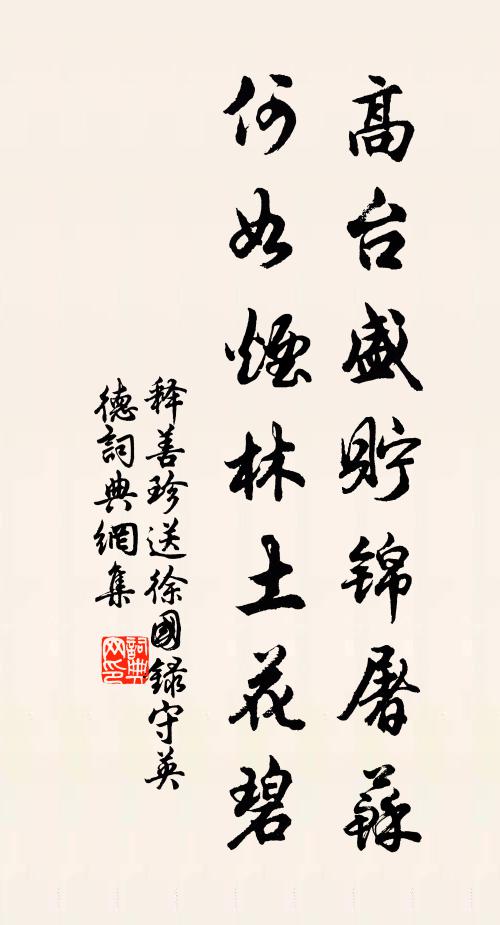 高台盛貯錦屠蘇
何如煙林土花碧
释善珍送徐國録守英
德詞典網集
詞典网印